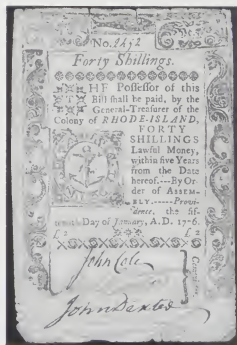 No. 2472
Forty Shillings.
THE Possessor of this
Bill shall be paid, by the
General-Treasurer of the
Colony of RHODE-ISLAND,
FORTY
SHILLINGS
Lawful Money,
within five Years
from the Date
hereof.---By Or-
der of ASSEM-
BLY.-----Provi-
dence, the fif-
teenth Day of January, A.D. 1776.
£ 2 £ 2
John Cole
John Dexter